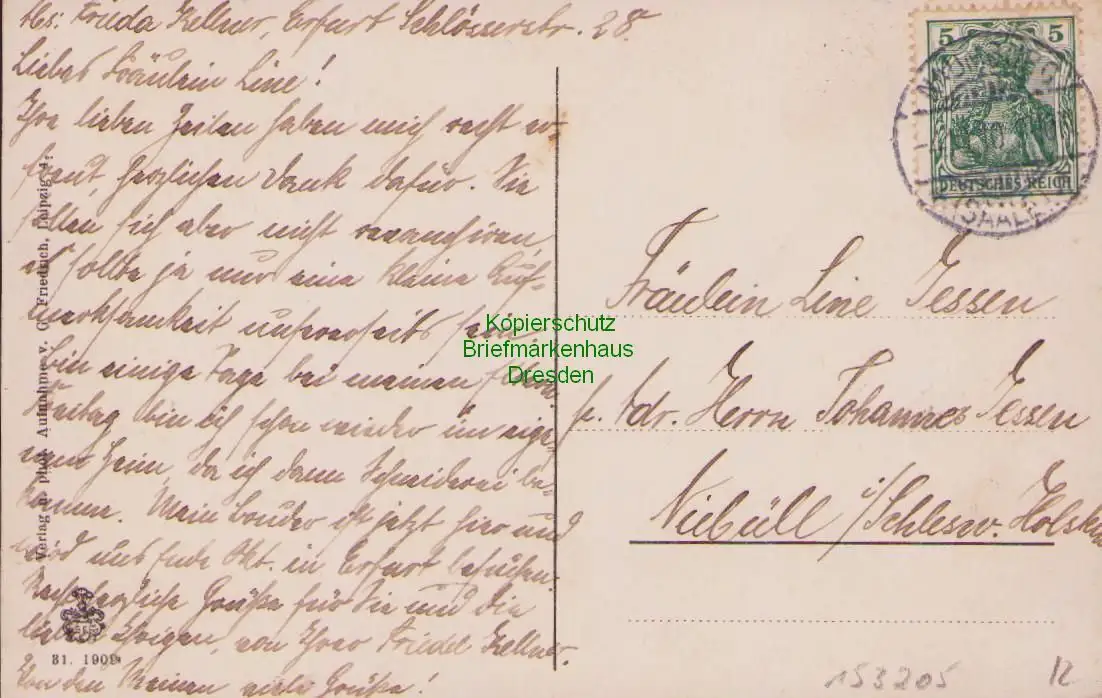 Abs: Frieda Kellner, Erfurt Schlösserstr. 28.
Liebes Fräulein Line!
Ihre lieben Zeilen haben mich recht er-
freut, herzlichen Dank dafür. Sie
sollen sich aber nicht revanchiren,
es sollte ja nur eine kleine Auf-
merksamkeit unsererseits sein.
bin einige Tage bei meinen Eltern
Freitag bin ich schon wieder im eige-
nen Heim, da ich dann Schneiderei be-
komme. Mein Bruder ist jetzt hier und
wird uns Ende Okt. in Erfurt besuchen.
Recht herzliche Grüße für Sie und die
lieben Ihrigen, von Ihrer Friedel Kellner.
Von den Meinen viele Grüße!
Verlag u. phot. Aufnahme v. C. Friedrich, Leipzig 4.
31. 1909
5 5
DEUTSCHES REICH
(SAALE)
Fräulein Line Jessen
p. Adr. Herrn Johannes Jessen
Niebüll i/Schlesw. Holst
Kopierschutz
Briefmarkenhaus
Dresden
153205
12